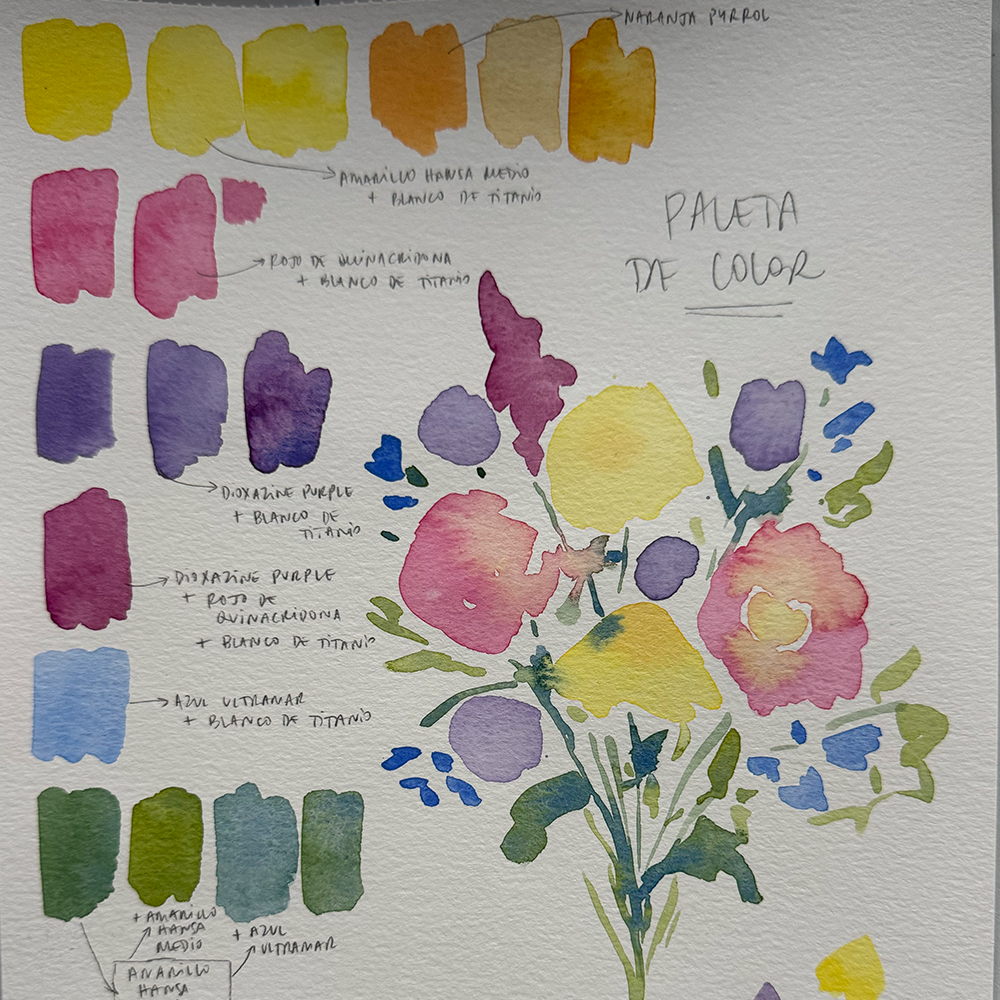 NARANJA PYRROL
AMARILLO HANSA MEDIO
+ BLANCO DE TITANIO
PALETA
DE COLOR
ROJO DE QUINACRIDONA
+ BLANCO DE TITANIO
DIOXAZINE PURPLE
+ BLANCO DE
TITANIO
DIOXAZINE PURPLE
+ ROJO DE
QUINACRIDONA
+ BLANCO DE TITANIO
AZUL ULTRAMAR
+ BLANCO DE TITANIO
+ AMARILLO
HANSA
MEDIO
+ AZUL
ULTRAMAR
AMARILLO
HANSA